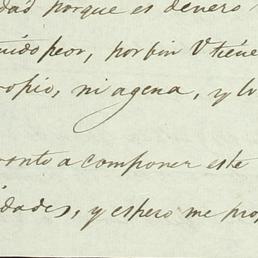 dad porque es denero
nido peor, por fin V tiene
ropio, ni agena, y lo
ronto a componer este
idades, y espero me pro